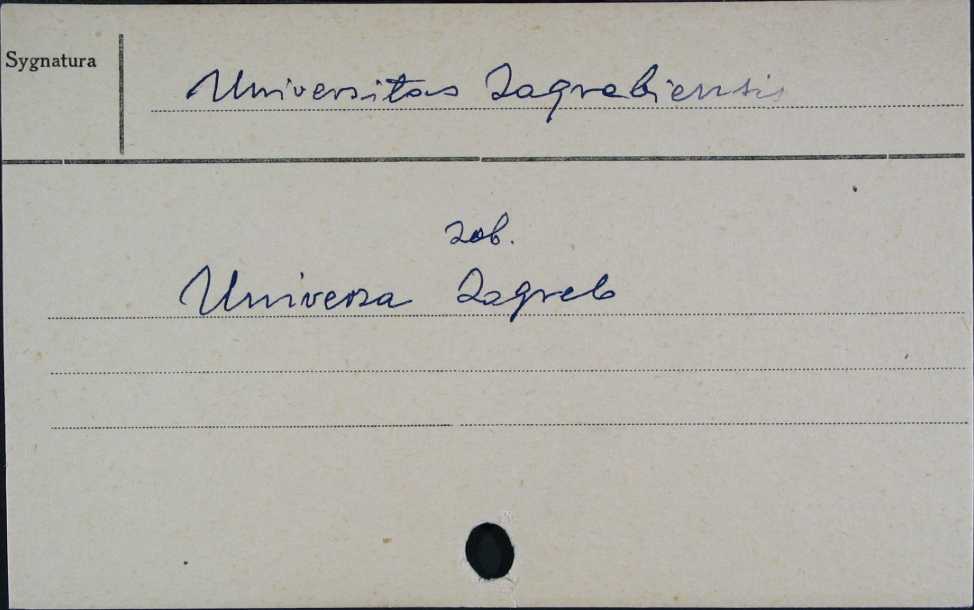 Sygnatura
Universitas Zagrebiensis
zob.
Univerza Zagreb